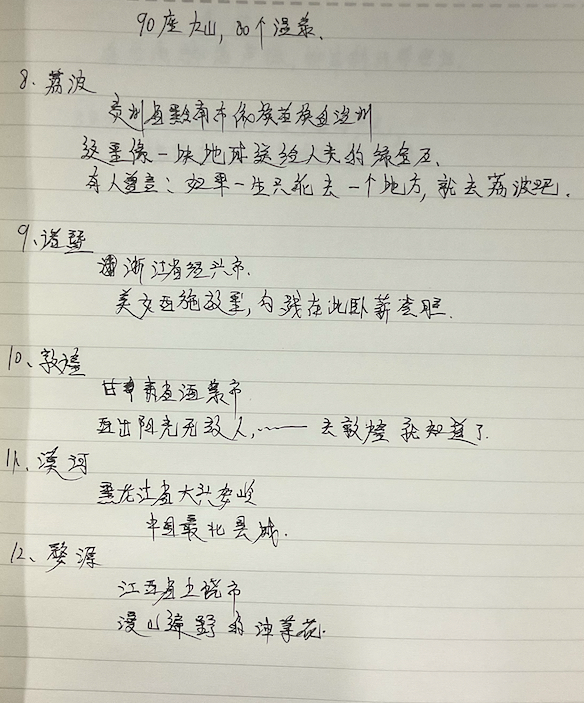 90座火山, 80个温泉.
8. 荔波
贵州省黔南布依族苗族自治州
这里像一块地球送给人类的绿宝石.
有人曾言: 如果一生只能去一个地方, 就去荔波吧.
9、诸暨
浙江省绍兴市.
美女西施故里, 勾践在此卧薪尝胆.
10、敦煌
甘肃省酒泉市
西出阳光无故人, ……—— 去敦煌就知道了.
11、漠河
黑龙江省大兴安岭
中国最北县城.
12、婺源
江西省上饶市
漫山遍野的油菜花.